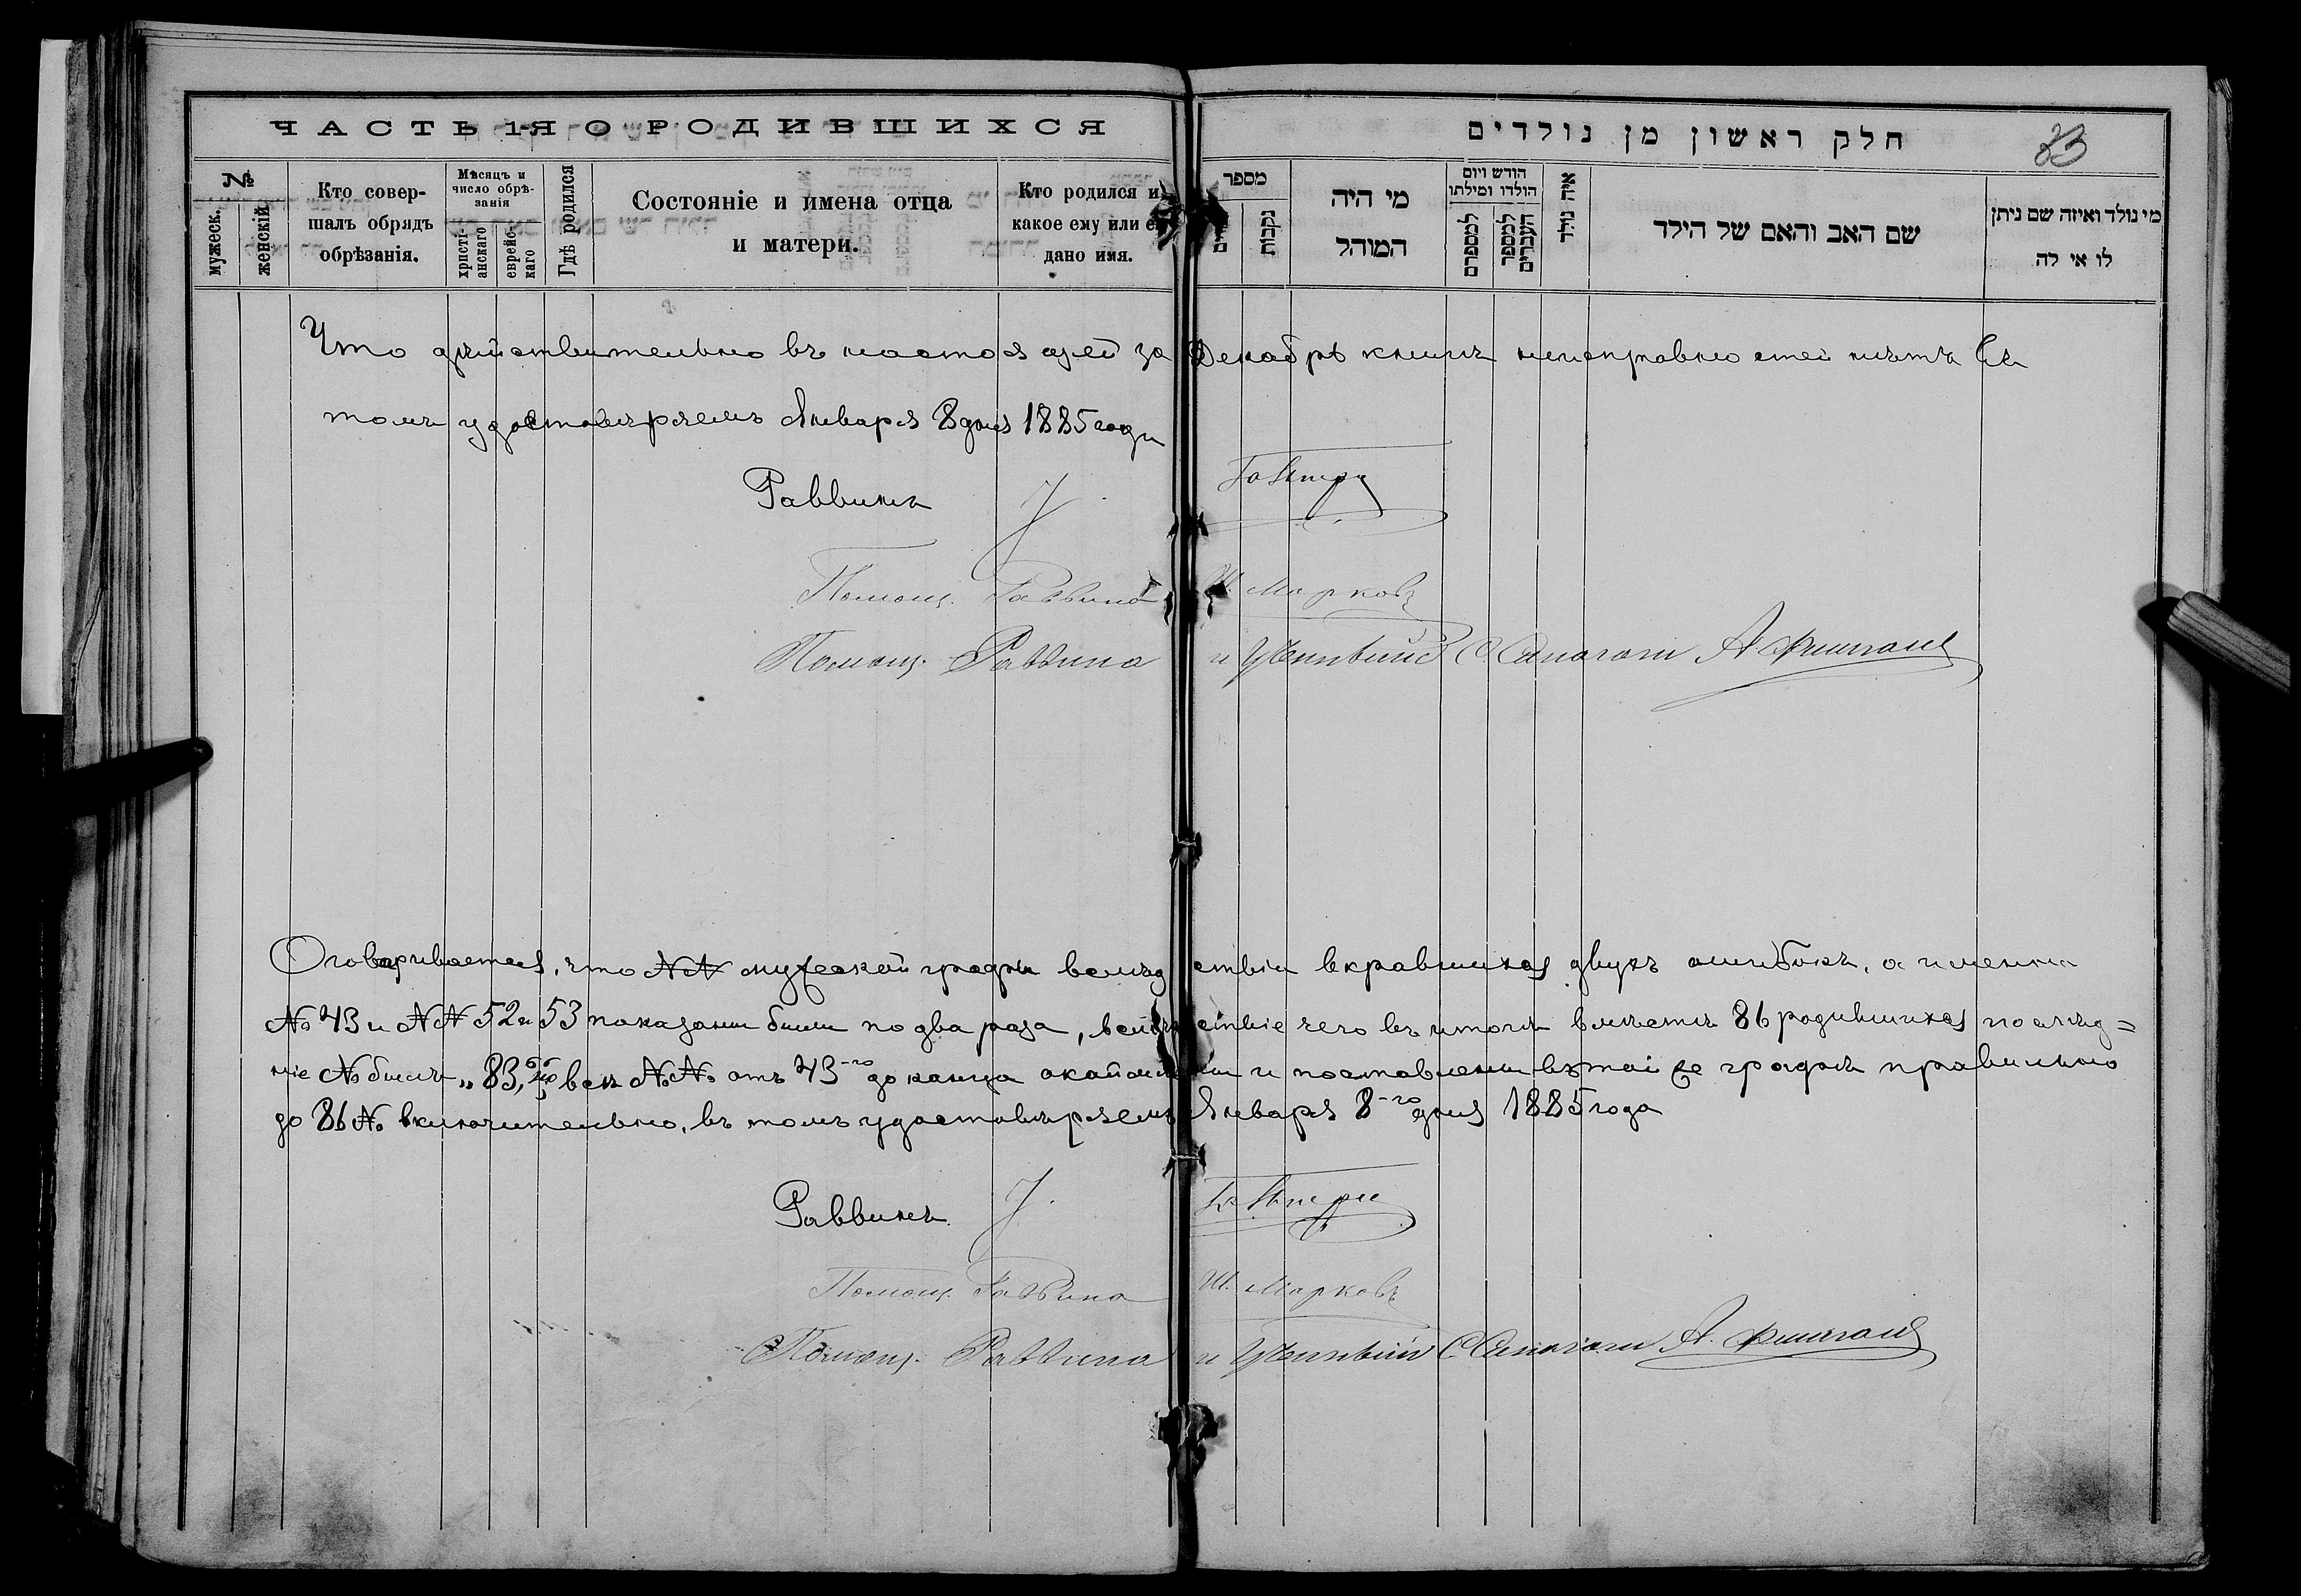 ЧАСТЬ 1-Я О РОДИВШИХСЯ
№
мужеск.
женскій
Кто совер-
шалъ обрядъ
обрѣзанія.
Мѣсяцъ и
число обрѣ-
занія
христі-
анскаго
еврейс-
каго
Гдѣ родился
Состояніе и имена отца
и матери.
Кто родился и
какое ему или
дано имя.
חלק ראשון מן נולדים
83
מספר
נקבות
מי היה
המוהל
חודש ויום
הולדו ומילתו
למספרם
למספר
העברים
איה נולד
שם האב והאם של הילד
מי נולד ואיזה שם ניתן
לו או לה
Что дѣйствительно въ настоящей за Декабрь книгѣ неисправностей нѣтъ Въ
томъ удостовѣряемъ Января 8 дня 1885 года
Раввинъ
Помощ. Раввина Ш. Марковъ
Помощ. Раввина и
Оговаривается, что №№ мужеской графы вслѣдствіи вкравшихся двухъ ошибокъ, а именно
№ 43 и №№ 52 и 53 показаны были по два раза, вслѣдствіе чего въ итогѣ вмѣсто 86 родившихся послѣд=
ніе № былъ „83, всѣ №№ отъ 43-го до конца и поставлены въ той же графѣ правильно
до 86 № включительно, въ томъ удостовѣряемъ Января 8-го дня 1885 года
Раввинъ
Помощ. Раввина Ш. Марковъ
Помощ. Раввина и